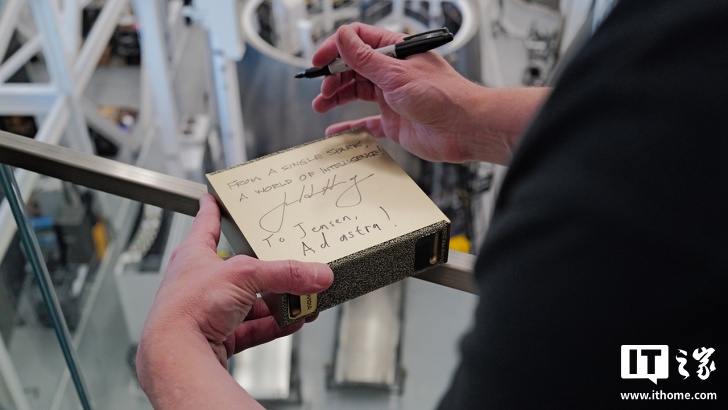 FROM A SINGLE SPARK,
A WORLD OF INTELLIGENCE!
To Jensen,
Ad astra!
IT之家
www.ithome.com